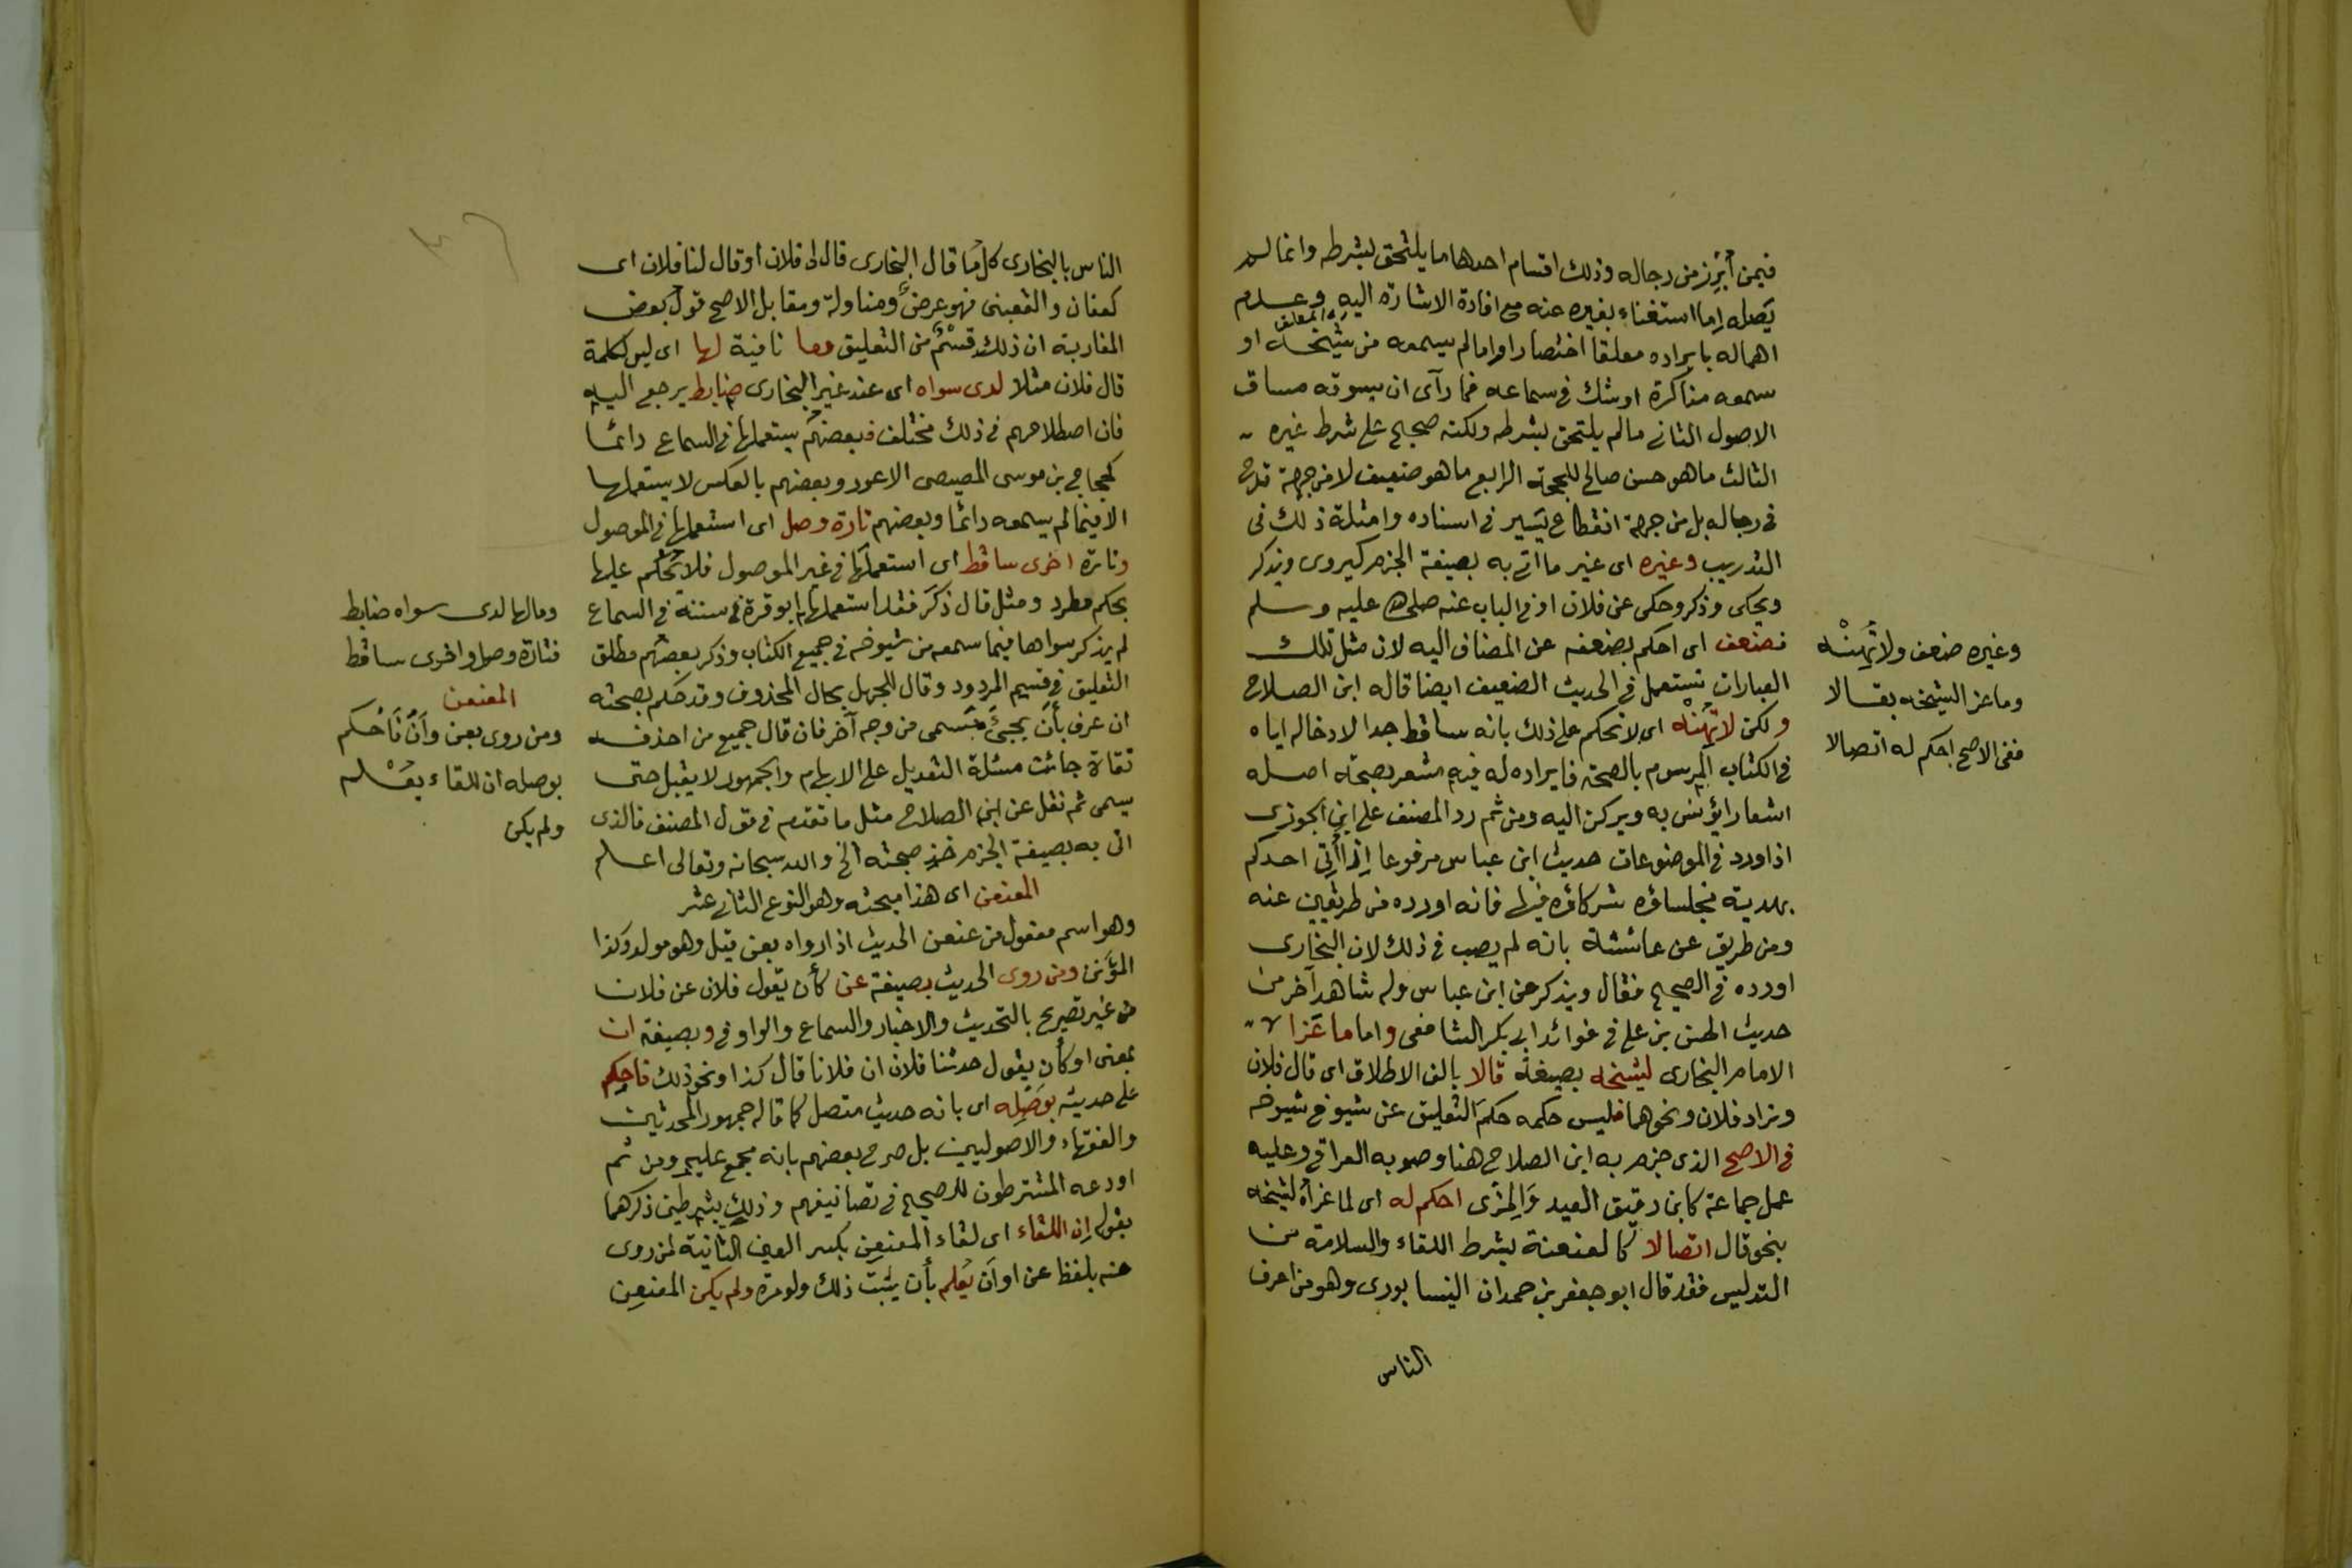 فيمن أبرز من رجاله وذلك اقسام احدها ما يلتحق بشرطه وانما لم
يصله إما استغناء بغيره عنه مع افادة الاشارة اليه وعدم
اهماله بايراده معلقا اختصارا واما لم يسمعه من شيخه او
سمعه مذاكرة او شك في سماعه فما رأى ان يسوقه مساق
الاصول الثاني ما لم يلتحق بشرطه ولكنه صحيح على شرط غيره
الثالث ما هو حسن صالح للحجة الرابع ما هو ضعيف لا من جهة قدح
في رجاله بل من جهة انقطاع يسير في اسناده وامثلة ذلك في
التدريب وغيره اى غير ما اتى به بصيغة الجزم كيروى ويذكر
ويحكى وذكر وحكى عن فلان او في الباب عنه صلى الله عليه وسلم
فضعف اى احكم بضعفه عن المضاف اليه لان مثل تلك
العبارات تستعمل في الحديث الضعيف ايضا قاله ابن الصلاح
ولكن لا تهنه اى لا تحكم على ذلك بانه ساقط جدا لادخاله اياه
في الكتاب المرسوم بالصحة فايراده له فيه مشعر بصحة اصله
اشعارا يؤنس به ويركن اليه ومن ثم رد المصنف على ابن الجوزى
اذ اورد في الموضوعات حديث ابن عباس مرفوعا إذا أتي احدكم
بهدية فجلساؤه شركاؤه فيها فانه اورده من طريقين عنه
ومن طريق عن عائشة بانه لم يصب في ذلك لان البخارى
اورده في الصحيح فقال ويذكر عن ابن عباس وله شاهد آخر من
حديث الحسن بن على في فوائد ابى بكر الشافعى واما ما عزا
الامام البخارى لشيخه بصيغة قالا بالف الاطلاق اى قال فلان
وزاد فلان ونحوهما فليس حكمه حكم التعليق عن شيوخ شيوخه
في الاصح الذى جزم به ابن الصلاح هنا وصوبه العراقى وعليه
عمل جماعة كابن دقيق العيد والمزى احكم له اى لما عزاه لشيخه
بنحو قال اتصالا كالعنعنة بشرط اللقاء والسلامة من
التدليس فقد قال ابو جعفر بن حمدان النيسابورى وهو من اعرف
الناس
وغيره ضعف ولا تهنه
وما عزا لشيخه بقالا
ففى الاصح احكم له اتصالا
الناس بالبخارى كل ما قال البخارى قال لى فلان او قال لنا فلان اى
كعفان والقعنبى فهو عرض ومناولة ومقابل الاصح قول بعض
المغاربة ان ذلك قسم من التعليق وما نافية لها اى ليس لكلمة
قال فلان مثلا لدى سواه اى عند غير البخارى ضابط يرجع اليه
فان اصطلاحهم في ذلك مختلف فبعضهم يستعملها في السماع دائما
كحجاج بن موسى المصيصى الاعور وبعضهم بالعكس لا يستعملها
الا فيما لم يسمعه دائما وبعضهم تارة وصل اى استعملها في الموصول
وتارة اخرى ساقط اى استعملها في غير الموصول فلا تحكم عليها
بحكم مطرد ومثل قال ذكر فقد استعملها ابو قرة في سننه في السماع
لم يذكر سواها فيما سمعه من شيوخه في جميع الكتاب وذكر بعضهم مطلق
التعليق في قسيم المردود وقال للجهل بحال المحذوف وقد حكم بصحته
ان عرف بأن يجئ مسمى من وجه آخر فان قال جميع من احذفه
ثقات جائت مسئلة التعديل على الابهام والجمهور لا يقبل حتى
يسمى ثم نقل عن ابن الصلاح مثل ما تقدم في قول المصنف فالذى
اتى به بصيغة الجزم خذ صحته الخ والله سبحانه وتعالى اعلم
المعنعن اى هذا مبحثه وهو النوع الثانى عشر
وهو اسم مفعول من عنعن الحديث اذا رواه بعن قيل وهو مولد وكذا
المؤنن ومن روى الحديث بصيغة عن كأن يقول فلان عن فلان
من غير تصريح بالتحديث والاخبار والسماع والواو في وبصيغة ان
بمعنى او كأن يقول حدثنا فلان ان فلانا قال كذا ونحو ذلك فاحكم
على حديثه بوصله اى بانه حديث متصل كما قاله جمهور المحدثين
والفقهاء والاصوليين بل صرح بعضهم بانه مجمع عليه ومن ثم
اودعه المشترطون للصحيح في تصانيفهم وذلك بشرطين ذكرهما
بقوله إن اللقاء اى لقاء المعنعن بكسر العين الثانية لمن روى
عنه بلفظ عن او أن يعلم بأن يثبت ذلك ولو مرة ولم يكن المعنعن
وما لها لدى سواه ضابط
فتارة وصل واخرى ساقط
المعنعن
ومن روى بعن وأن فاحكم
بوصله ان اللقاء يعلم
ولم يكن